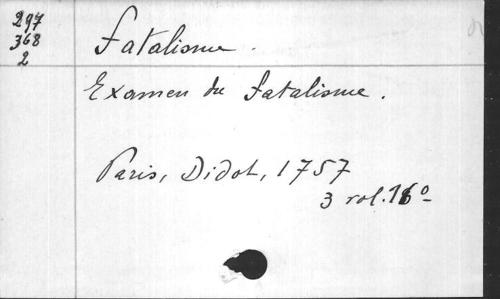 297
368
2
Fatalisme.
Examen du Fatalisme.
Paris, Didot, 1757
3 vol. 16º